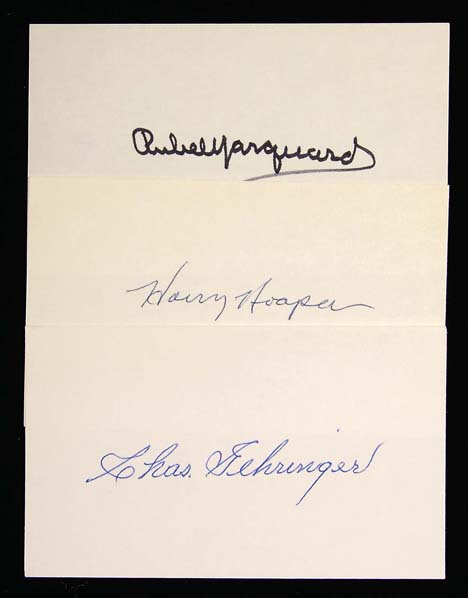 Rube Marquard
Harry Hooper
Chas. Gehringer